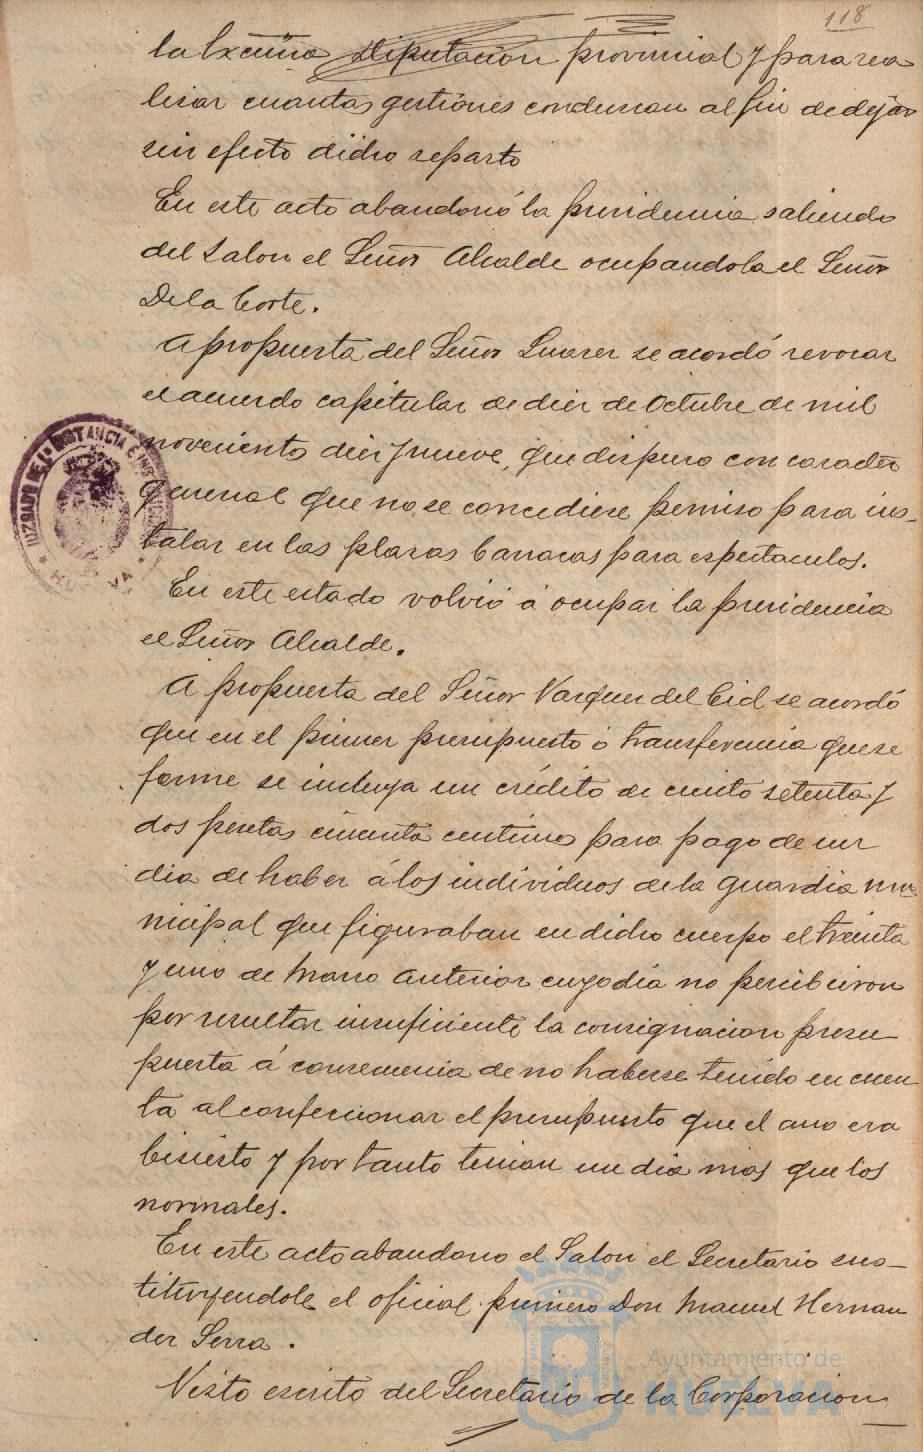 118
la Excma Diputacion provincial y para rea
lisar cuantas gestiones conduscan al fin de dejar
sin efecto dicho reparto
En este acto abandonó la presidencia saliendo
del Salon el Señor Alcalde ocupandola el Señor
De la Corte.
A propuesta del Señor Suarez se acordó revocar
el acuerdo capitular de diez de Octubre de mil
noveciento diez y nueve, que dispuso con caracter
general que no se concediese permiso para ins-
talar en las plazas barracas para espectaculos.
En este estado volvió á ocupar la presidencia
el Señor Alcalde.
A propuesta del Señor Vazquez del Cid se acordó
que en el primer presupuesto ó transferencia que se
forme se incluya un crédito de ciento setenta y
dos pesetas cincuenta centimos para pago de un
dia de haber á los individuos de la guardia mu-
nicipal que figuraban en dicho cuerpo el treinta
y uno de Marzo anterior cuyo dia no percibieron
por resultar insuficiente la consignacion presu
puesta á consecuencia de no haberse tenido en cuen
ta al confeccionar el presupuesto que el ano era
bisiesto y por tanto tenian un dia mas que los
normales.
En este acto abandono el Salon el Secretario sus-
tituyendole el oficial primero Don Manuel Hernan
dez Serra.
Visto escrito del Secretario de la Corporacion
JUZGADO DE 1ª INSTANCIA E
HUELVA
Ayuntamiento de
HUELVA